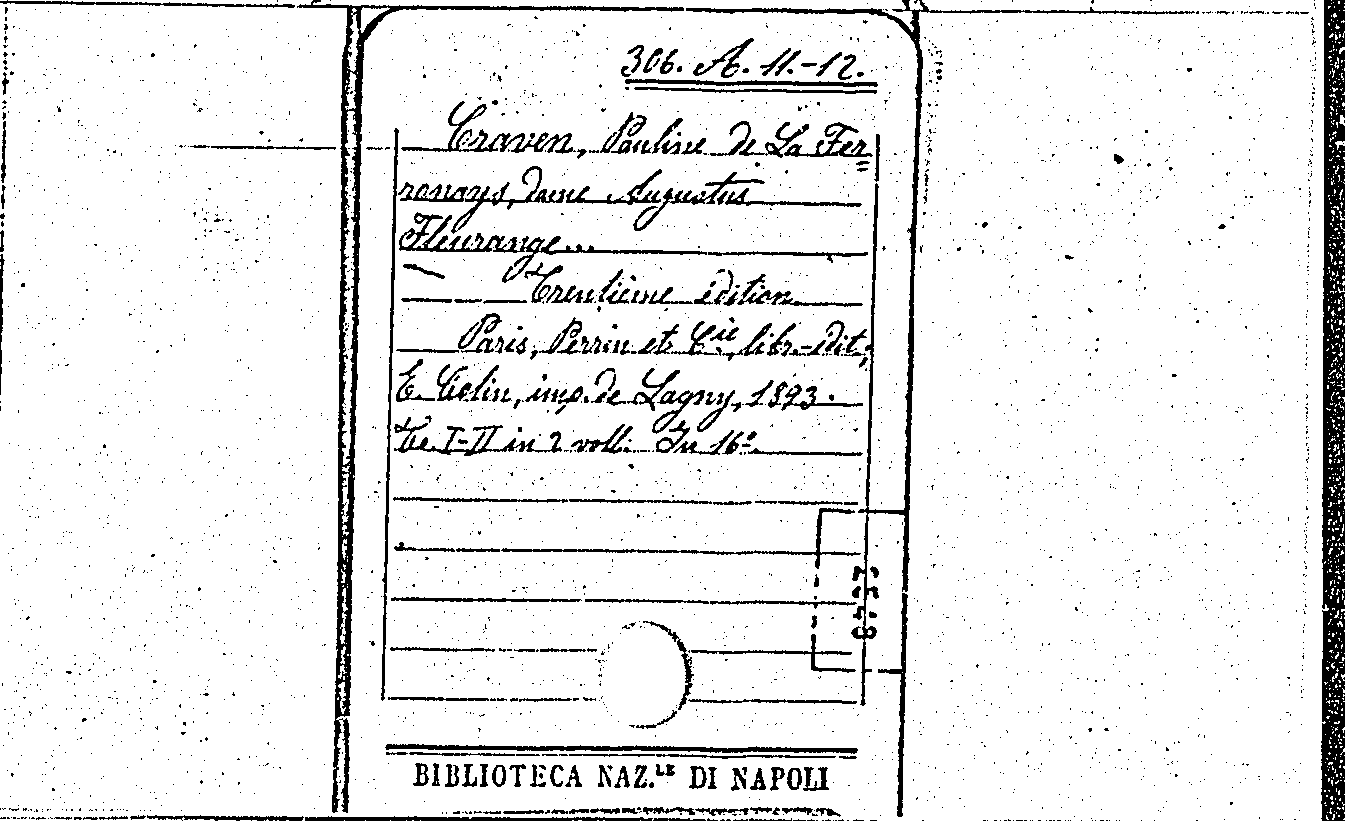 306. A. 11.-12.
Craven, Pauline de La Fer=
ronays, dame Augustus
Fleurange...
Trentième édition
Paris, Perrin et Cie, libr.-édit.;
E. Colin, imp. de Lagny, 1893.
Te. I-II in 2 voll. In 16º.
BIBLIOTECA NAZ.LE DI NAPOLI